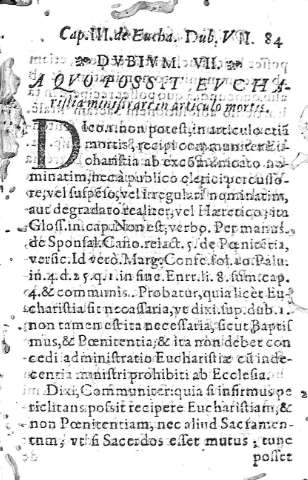 Cap. III. de Eucha. Dub. VII. 84
DVBIVM. VII.
A QVO POSSIT EVCHA-
ristia ministrare in articulo mortis.
Dico. 1. non potest, in articulo etiā
mortis, recipi communiter Eu-
charistia ab excōmunicato no
minatim, nec à publico clerici percusso-
re, vel suspēso, vel irregulari nominatim,
aut degradato realiter, vel Hæretico, ita
Gloss. in cap. Non est, verbo. Per manus
de Sponsal. Caño. relact. 5. de Pœnitētia,
versic. Id verò. Marg. Confes. fol. 20. Palu.
in 4. d. 25. q. 1. in fine. Enrr. li. 8. sum. cap.
4. & communis. Probatur, quia licèt Eu-
charistia sit necessaria, vt dixi sup. dub. 1.
non tamen est ita necessaria, sicut Baptis
mus, & Pœnitentia; & ita non debet con
cedi administratio Eucharistiæ cū inde-
centia ministri prohibiti ab Ecclesia.
Dixi, Communiter: quia si infirmus pe
riclitans possit recipere Eucharistiam, &
non Pœnitentiam, nec aliud Sacramen-
tum; vt si Sacerdos esset mutus; tunc
posset